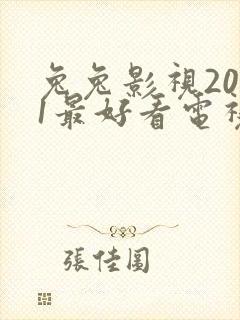 兔兔影視20
1最好看電視
張佳圓